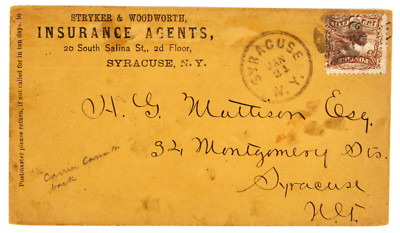 STRYKER & WOODWORTH,
INSURANCE AGENTS,
20 South Salina St., 2d Floor,
SYRACUSE, N. Y.
Postmaster please return, if not called for in ten days, to
SYRACUSE
JAN
31
N.Y.
H. G. Mattison Esq.
34 Montgomery Sts.
Syracuse
N.Y.
Carrier
back